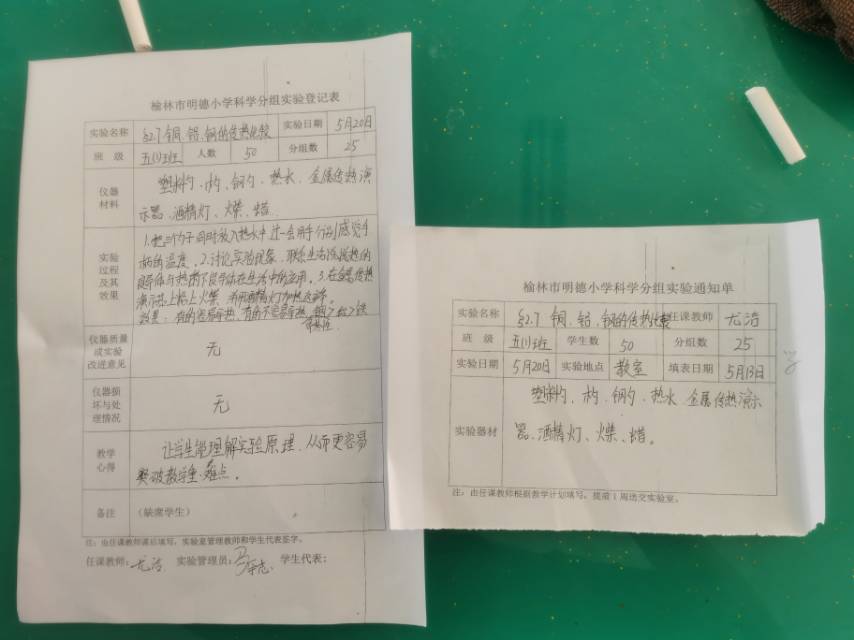 榆林市明德小学科学分组实验登记表
实验名称 §2.7 铜、铝、钢的传热比较 实验日期 5月20日
班 级 五(1)班 人数 50 分组数 25
仪器材料 塑料勺、木勺、钢勺、热水、金属传热演
示器、酒精灯、火柴、蜡
实验过程及其效果 1.把三个勺子同时放入热水中过一会用手分别感觉手
柄的温度。2.讨论实验现象,联系生活
良导体与热的不良导体在生活中的应用。3.在金属传热
演示器上粘上火柴
效果:有的容易导热,有的不容易导热
仪器质量或实验改进意见 无
仪器损坏与处理情况 无
教学心得 让学生能理解实验原理,从而更容易
突破教学重、难点。
备注 (缺席学生)
注:由任课教师课后填写,实验室管理教师和学生代表签字。
任课教师: 尤洁 实验管理员: 学生代表:
榆林市明德小学科学分组实验通知单
实验名称 §2.7 铜、铝、钢的传热比较 任课教师 尤洁
班 级 五(1)班 学生数 50 分组数 25
实验日期 5月20日 实验地点 教室 填表日期 5月13日
实验器材 塑料勺、木勺、钢勺、热水、金属传热演示
器、酒精灯、火柴、蜡。
注:由任课教师根据教学计划填写,提前1周送交实验室。